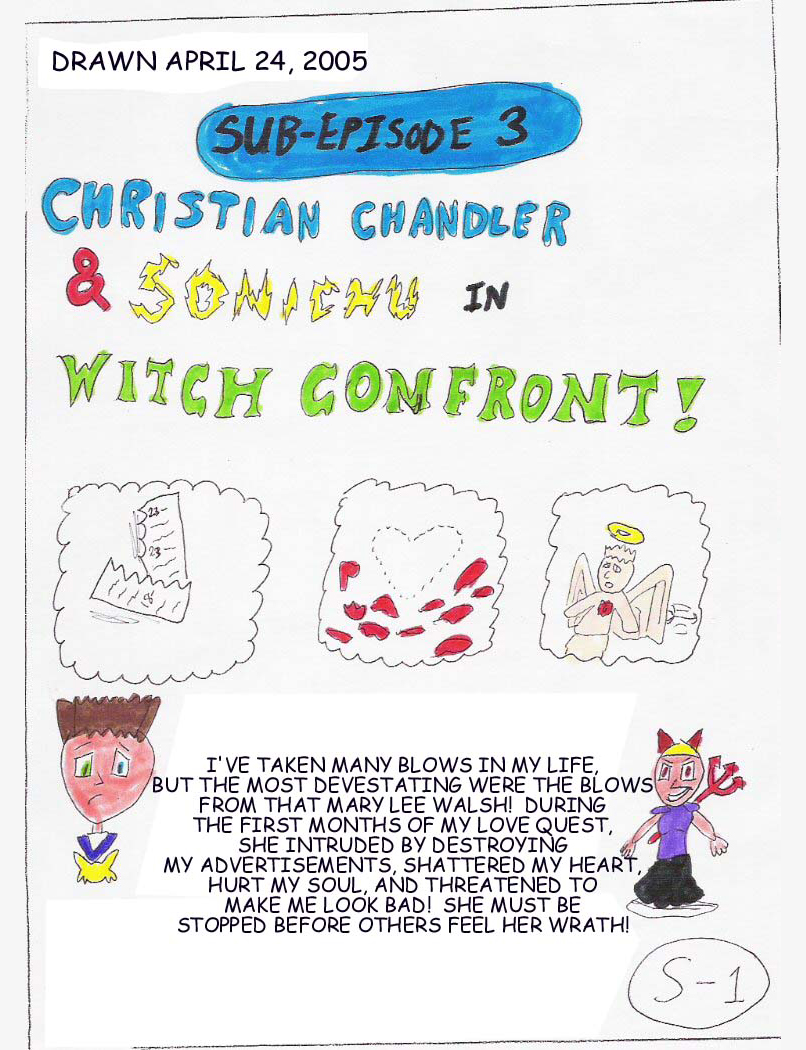 DRAWN APRIL 24, 2005
SUB-EPISODE 3
CHRISTIAN CHANDLER
& SONICHU IN
WITCH CONFRONT!
23-
23-
I'VE TAKEN MANY BLOWS IN MY LIFE,
BUT THE MOST DEVESTATING WERE THE BLOWS
FROM THAT MARY LEE WALSH! DURING
THE FIRST MONTHS OF MY LOVE QUEST,
SHE INTRUDED BY DESTROYING
MY ADVERTISEMENTS, SHATTERED MY HEART,
HURT MY SOUL, AND THREATENED TO
MAKE ME LOOK BAD! SHE MUST BE
STOPPED BEFORE OTHERS FEEL HER WRATH!
S-1